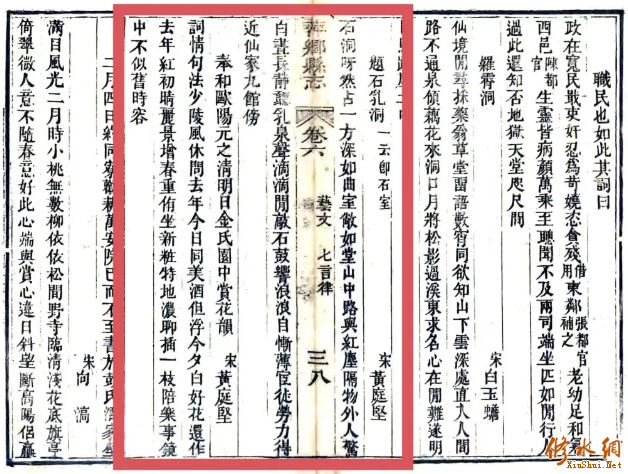 職民也如此其詞曰
政在寬民敢東奸忍爲苛嬈恣貪殘 借東鄰 張都官
用 補之 老幼足和氣
西邑 陳都官 生靈皆病顏萬乘至聰聞不及兩司端坐匹如閒行人
過此還知否地獄天堂咫尺間
羅霄洞 宋 白玉蟾
仙境閒尋採藥翁草堂畱語數宵同欲知山下雲深處直入人間
路不通泉傾藕花來洞口月將松影過溪東求名心在閒難遂明
題石乳洞 一云卽石室 宋 黃庭堅
石洞呀然占一方深如曲室敞如堂山中路與紅塵隔物外人驚
白晝長靜聽乳泉聲滴滴閒敲石鼓響浪浪自慚薄宦徒勞力得
近仙家九館傍
萍鄉縣志 卷六 藝文 七言律 三八
奉和歐陽元之淸明日金氏園中賞花韻 宋 黃庭堅
詞情句法少陵風休問去年今日同美酒但浮今夕白好花還作
去年紅初晴麗景增春重侑坐新粧特地濃聊插一枝陪樂事鏡
中不似舊時容
二月四日約同寮 萬安院已而不至書於彭氏酒家坐
宋 向 滈
滿目風光二月時小桃無數柳依依松間野寺臨淸淺花底旗亭
倚翠微人意不隨春意好此心端與賞心違日斜望斷高陽侶羸
修水網
XiuShui.Net